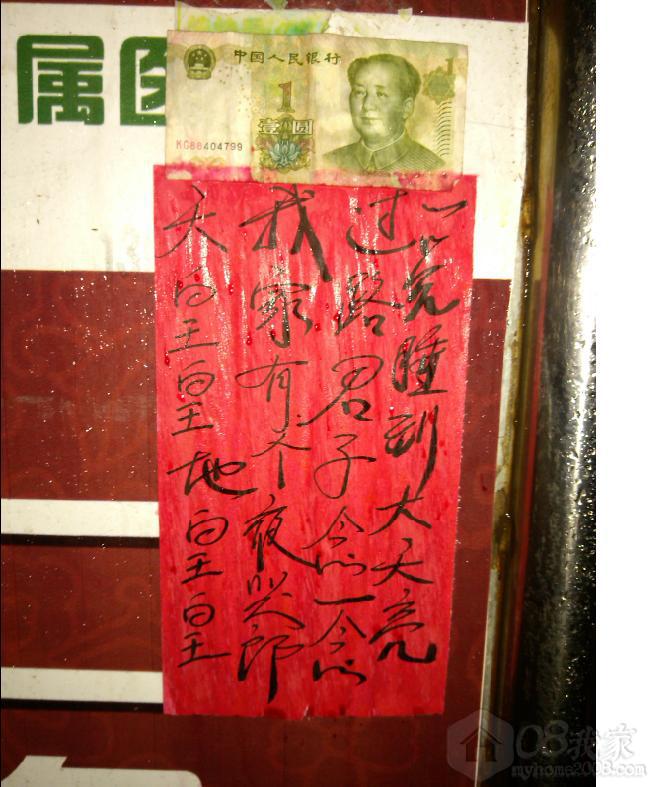 属
中国人民银行
1
1
壹圆
KG88404799
天皇皇地皇皇
我家有个夜哭郎
过路君子念一念
一觉睡到大天亮
08我家
myhome2008.com